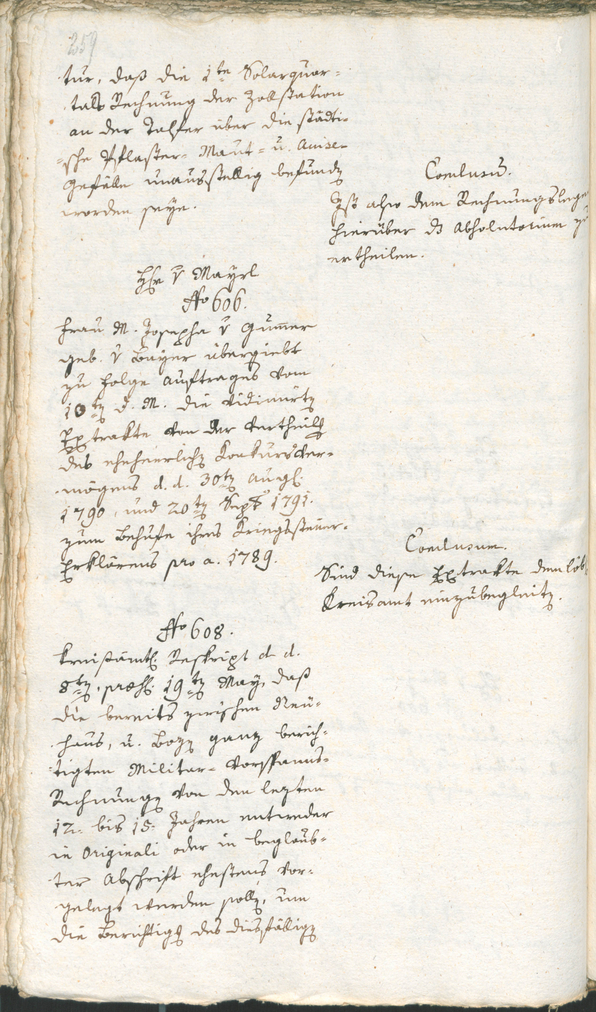 259
tur, daß die 1te Solarquar-
tals Rechnung der Zollstation
an der Talfer über die städti-
sche Pflaster- Maut- u. Aviser
Gefälle unausstellig befundẽ
worden seye.
Conclusũ.
Ist also dem Rechnungslege
hierüber ds Absolutorium zu
ertheilen.
Hr v Mayrl
No 606.
Frau M. Josepha v Gumer
geb. v Bayer übergiebt
zu Folge Auftrages vom
10tẽ d. M. die vidimirtẽ
Extrakte von der Vertheilg
des eheherrlichẽ Konkursver-
mögens d. d. 30tẽ Augl.
1790, und 20tẽ Sept 1791.
zum Behufe ihres Kriegssteuer-
Erklärens pro a. 1789.
Conclusum.
Sind diese Extrakte dem löb
Kreisamt einzubegleitẽ.
No 608.
Kreisämtl. Reskript d. d.
8tẽ, præs. 19tẽ May, daß
die bereits zwischen Neu-
haus, u. Bozẽ ganz berich-
tigten Militar- Vorspanns-
Rechnungẽ von den lezten
12 bis 15 Jahren entweder
in Originali oder in beglaub-
ter Abschrift ehestens vor-
gelegt werden sollẽ, um
die Berichtigg des diesfälligẽ